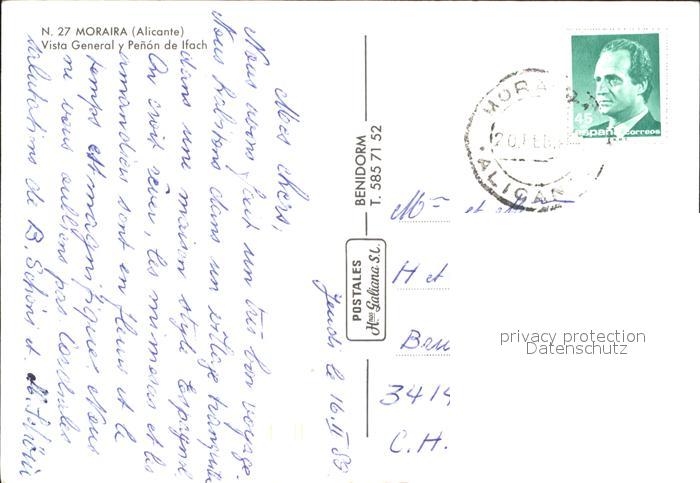 N. 27 MORAIRA (Alicante)
Vista General y Peñón de Ifach
Jeudi le 16. II 89.
Mes chers,
Nous avons fait un très bon voyage.
Nous habitons dans un village tranquille
dans une maison style Espagnol.
On croit rêver, les mimosas et les
amandiers sont en fleurs et le
temps est magnifique. Nous
ne vous oublions pas. Cordiales
salutations de B. et
BENIDORM
T. 585 71 52
POSTALES
Hnos Galiana S.L.
45
españa correos
MORAIRA
20 FEB
ALICANTE
Mme et M
H et
3414
C.H.
privacy protection
Datenschutz